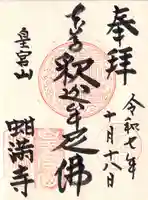 奉拝
令和七年
十月十八日
釈迦牟尼佛
皇宮山
蚶満寺